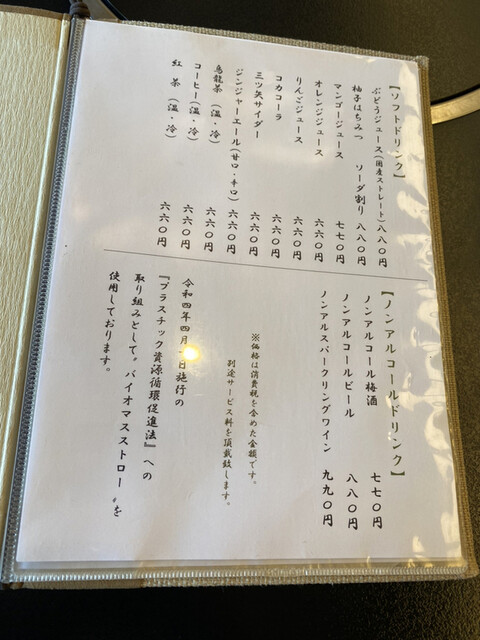 【ソフトドリンク】
ぶどうジュース(国産ストレート)八八〇円
柚子はちみつ ソーダ割り 八八〇円
マンゴージュース 七七〇円
オレンジジュース 六六〇円
りんごジュース 六六〇円
コカコーラ 六六〇円
三ツ矢サイダー 六六〇円
ジンジャーエール(甘口・辛口) 六六〇円
烏龍茶(温・冷) 六六〇円
コーヒー(温・冷) 六六〇円
紅茶(温・冷) 六六〇円
【ノンアルコールドリンク】
ノンアルコール梅酒 七七〇円
ノンアルコールビール 八八〇円
ノンアルスパークリングワイン 九九〇円
※価格は消費税を含めた金額です。
別途サービス料を頂戴致します。
令和四年四月 日施行の
『プラスチック資源循環促進法』への
取り組みとして。バイオマスストロー を
使用しております。